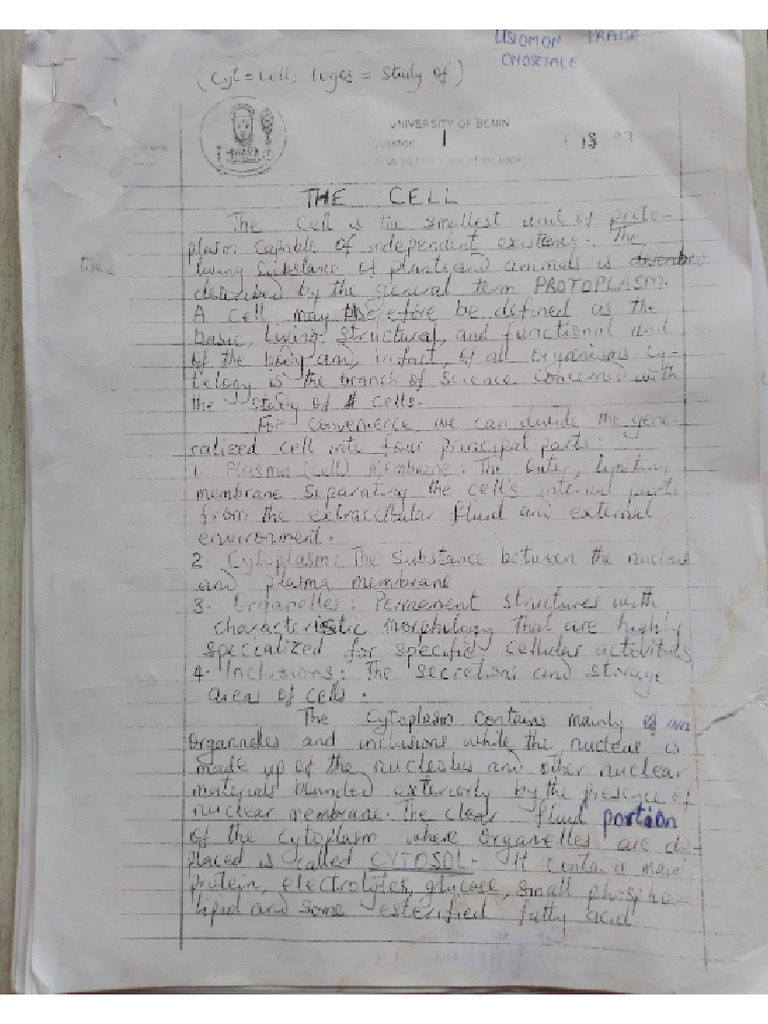 USIOMON PRAISE
ONOSETALE
(Cyt = Cell; loges = Study of)
UNIVERSITY OF BENIN
Question 1
THE CELL
The Cell is the smallest unit of proto-
plasm capable of independent existence. The
living substance of plants and animals is
described by the general term PROTOPLASM.
A Cell may therefore be defined as the
basic, living, structural, and functional unit
of the body and, infact, of all Organisms Cy-
tology is the branch of science concerned with
the study of cells.
For convenience, we can divide the gene-
ralized cell into four principal parts:
1. Plasma (Cell) Membrane: The outer,
membrane separating the cell's internal parts
from the extracellular fluid and external
environment.
2. Cytoplasm: The substance between the nucleus
and plasma membrane
3. Organelles: Permanent structures with
characteristic morphology that are highly
specialized for specific cellular activities
4. Inclusions: The secretions and storage
areas of cells.
The Cytoplasm contains mainly of
Organnelles and inclusions while the nucleus is
made up of the nucleolus and other nuclear
materials bounded exteriorly by the presence of
nuclear membrane. The clear fluid portion
of the cytoplasm where Organelles are dis-
placed is called CYTOSOL. It contains
protein, electrolytes, glucose, small phospho-
lipid and some esterified fatty acid